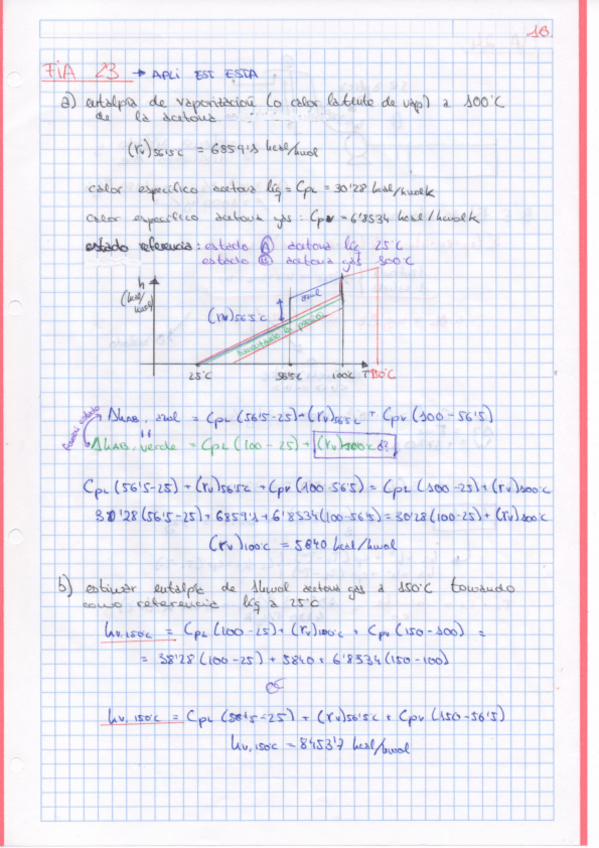 18
FIA 23 → APLI EST ESTA
a) entalpía de vaporización (o calor latente de vap) a 100°C
de la acetona
(rv)56'5°C = 6859'1 kcal/kmol
calor específico acetona líq = CpL = 30'28 kcal/kmolK
calor específico acetona gas : Cpv = 6'8534 kcal/kmolK
estado referencia: estado A acetona líq 25°C
estado B acetona gas 100°C
h
(kcal/kmol)
(rv)56'5°C
azul
aumentando la presión
25°C 56'5°C 100°C T 150°C
ΔhAB, azul = CpL (56'5-25) + (rv)56'5°C + Cpv (100-56'5)
ΔhAB, verde = CpL (100-25) + (rv)100°C ¿?
CpL (56'5-25) + (rv)56'5°C + Cpv (100-56'5) = CpL (100-25) + (rv)100°C
30'28 (56'5-25) + 6859'1 + 6'8534 (100-56'5) = 30'28 (100-25) + (rv)100°C
(rv)100°C = 5840 kcal/kmol
b) estimar entalpía de 1kmol acetona gas a 150°C tomando
como referencia líq a 25°C
hv,150°C = CpL (100-25) + (rv)100°C + Cpv (150-100) =
= 38'28 (100-25) + 5840 + 6'8534 (150-100)
hv,150°C = CpL (56'5-25) + (rv)56'5°C + Cpv (150-56'5)
hv,150°C = 8453'7 kcal/kmol